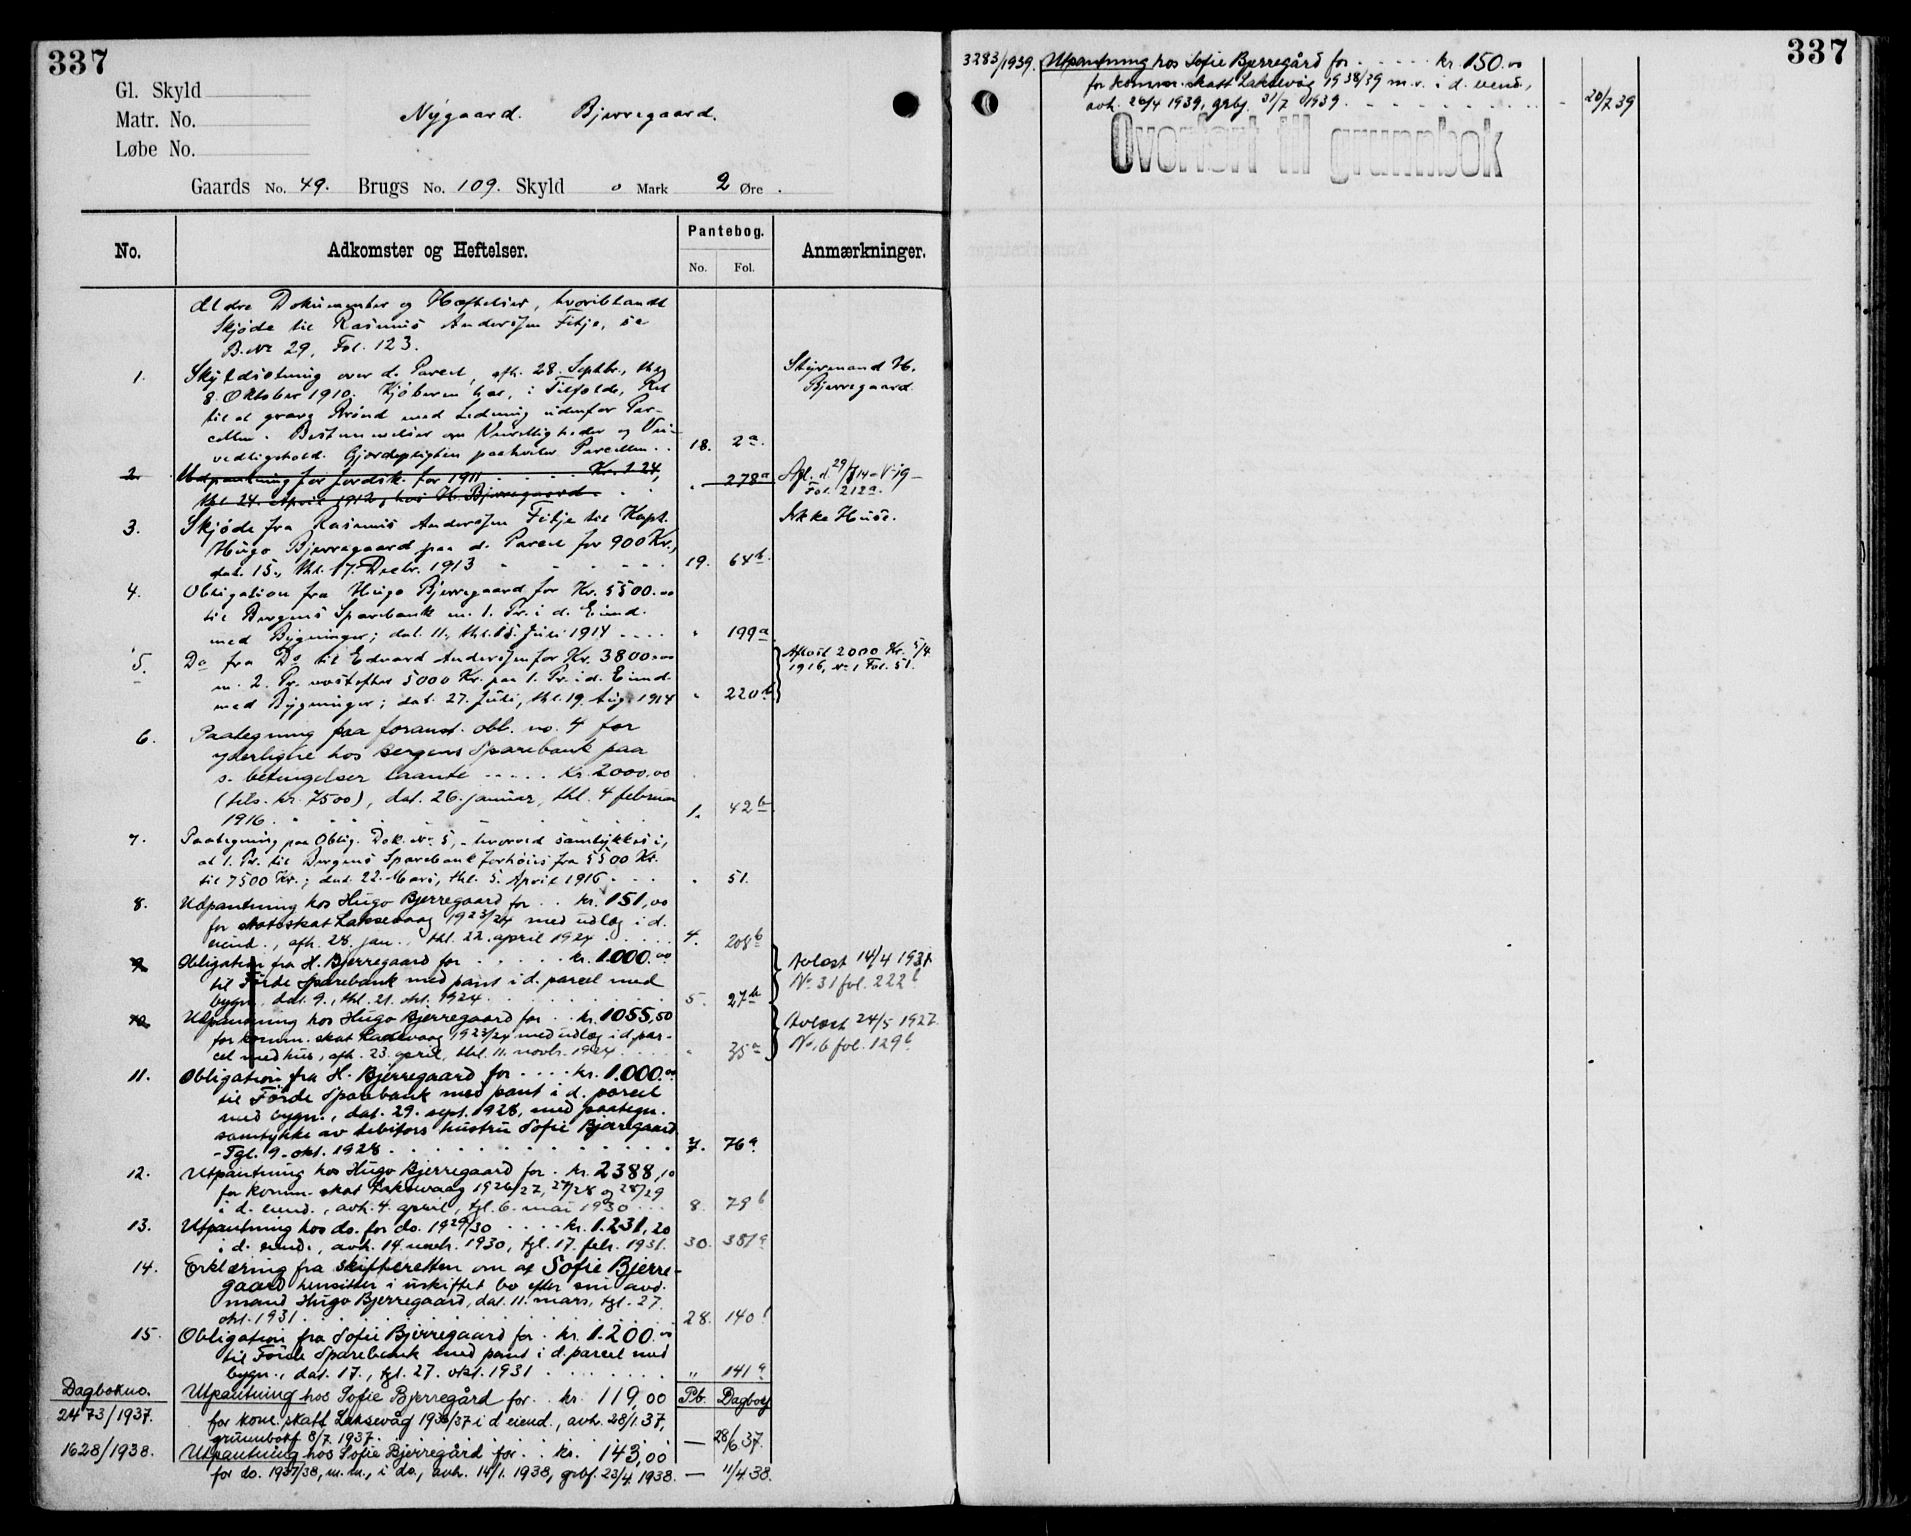 337
Gl. Skyld
Matr. No.
Løbe No.
Nygaard. Bjerregaard.
Gaards No. 49. Brugs No. 109. Skyld 0 Mark 2 Øre.
No.
Adkomster og Heftelser.
Pantebog.
No. Fol.
Anmærkninger.
Ældre Dokumenter og Hæftelser, hvoriblandt
Skjøde til Rasmus Anderssen Fitje, se
B. No 29, Fol. 123.
1. Skyldsetning over d. Parcel, afh. 28. Septbr., thlg
8. Oktober 1910. Kjøberen har, i Tilfælde, Ret
til at grave Brønd med Ledning udenfor Par-
cellen. Bestemmelser om Veirettigheder og Vei-
vedligehold. Gjerdepligten paahviler Parcellen . . 18. 2a.
Styrmand H.
Bjerregaard.
2. Udpantning for Jordsk. for 1911 . . . . Kr. 1.24,
thl. 24. April 1912, hos H. Bjerregaard . . . " 278a
Afl. d. 29/7 14 - No 19 -
Fol. 212a.
3. Skjøde fra Rasmus Anderssen Fitje til Kapt.
Hugo Bjerregaard paa d. Parcel for 900 Kr.,
dat. 15., thl. 17. Decbr. 1913 - - - - - 19. 64b.
Ikke Huse.
4. Obligation fra Hugo Bjerregaard for Kr. 5500.00
til Bergens Sparebank m. 1. Pr. i d. Eiend.
med Bygninger; dat. 11., thl. 15. Juli 1914 . . . . " 199a
5. Do fra Do til Edvard Anderssen for Kr. 3800.00
m. 2. Pr. næstefter 5000 Kr. paa 1. Pr. i d. Eiend.
med Bygninger; dat. 27. Juli, thl. 19. Aug. 1914 " 220b
Afløst 2000 Kr. 5/4
1916, No 1 Fol. 51.
6. Paategning paa foranst. obl. no. 4 for
yderligere hos Bergens Sparebank paa
s. betingelser laante - - - - - Kr. 2000.00
(tils. kr. 7500), dat. 26. januar, thl. 4 februar
1916 . . . . . . 1. 42b
7. Paategning paa Oblig. Dok. No 5, - hvorved samtykkes i,
at 1. Pr. til Bergens Sparebank forhøies fra 5500 Kr.
til 7500 Kr.; dat. 22. Mars, thl. 5. April 1916 . . . " 51.
8. Udpantning hos Hugo Bjerregaard for . . kr. 151,00
for statsskat Laksevaag 1923/24 med udlæg i d.
eiend., afh. 28. jan., thl. 22. april 1924 . . . . . 4. 208b
9. Obligation fra H. Bjerregaard for . . . . . kr. 1.000.00
til Førde Sparebank med pant i d. parcel med
bygn., dat. 9., thl. 21. okt. 1924 . . . . . . 5. 27b
Avløst 14/4 1931
No 31 fol. 222b
10. Udpantning hos Hugo Bjerregaard for . . kr. 1055,50
for komm. skat Laksevaag 1923/24 med udlæg i d. par-
cel med hus, afh. 23. april, thl. 11. novbr. 1924 . . . . " 35a
Avløst 24/5 1927.
No. 6 fol. 129b
11. Obligation fra H. Bjerregaard for . . . . kr. 1.000.00
til Førde Sparebank med pant i d. parcel
med bygn., dat. 29. sept. 1928, med paategn.
samtykke av debitors hustru Sofie Bjerregaard
- Tgl. 9. okt. 1928 . . . . . . . . . . 7. 76a
12. Utpantning hos Hugo Bjerregaard for . kr. 2388,10
for komm. skat Laksevaag 1926/27, 27/28 og 28/29
i d. eiend., avh. 4. april, tgl. 6. mai 1930 . . . 8. 79b
13. Utpantning hos do. for do. 1929/30 . . . . kr. 1.231,20
i d. eiend., avh. 14. novb. 1930, tgl. 17. febr. 1931. 30. 387a
14. Erklæring fra skifteretten om at Sofie Bjerre-
gaard hensitter i uskiftet bo efter sin avd.
mand Hugo Bjerregaard, dat. 11. mars, tgl. 27.
okt. 1931 . . . . . . . . . . . . 28. 140b
15. Obligation fra Sofie Bjerregaard for . kr. 1.200.00
til Førde Sparebank med pant i d. parcel med
bygn., dat. 17., tgl. 27. okt. 1931 . . . . . . . " 141a
Dagbokno. Pb. Dagbog
2473/1937. Utpantning hos Sofie Bjerregård for . . kr. 119,00
for kom. skatt Laksevåg 1936/37 i d eiend., avh. 28/1. 37,
grunnbokf 8/7. 1937 . . . . . . . . . — 28/6. 37.
1628/1938. Utpantning hos Sofie Bjerregård for . . kr. 143,00
for do. 1937/38, m. m., i do., avh. 14/1. 1938, grbf. 23/4. 1938. — 11/4. 38.
337
3283/1939. Utpantning hos Sofie Bjerregård for . - - - - kr. 150.00
for komm skatt Laksevåg 1938/39 m.v. i d. eiend.,
avh. 26/4 1939, grbf. 31/7 1939. - - - - - - - - - - - 20/7 39
Overført til grunnbok